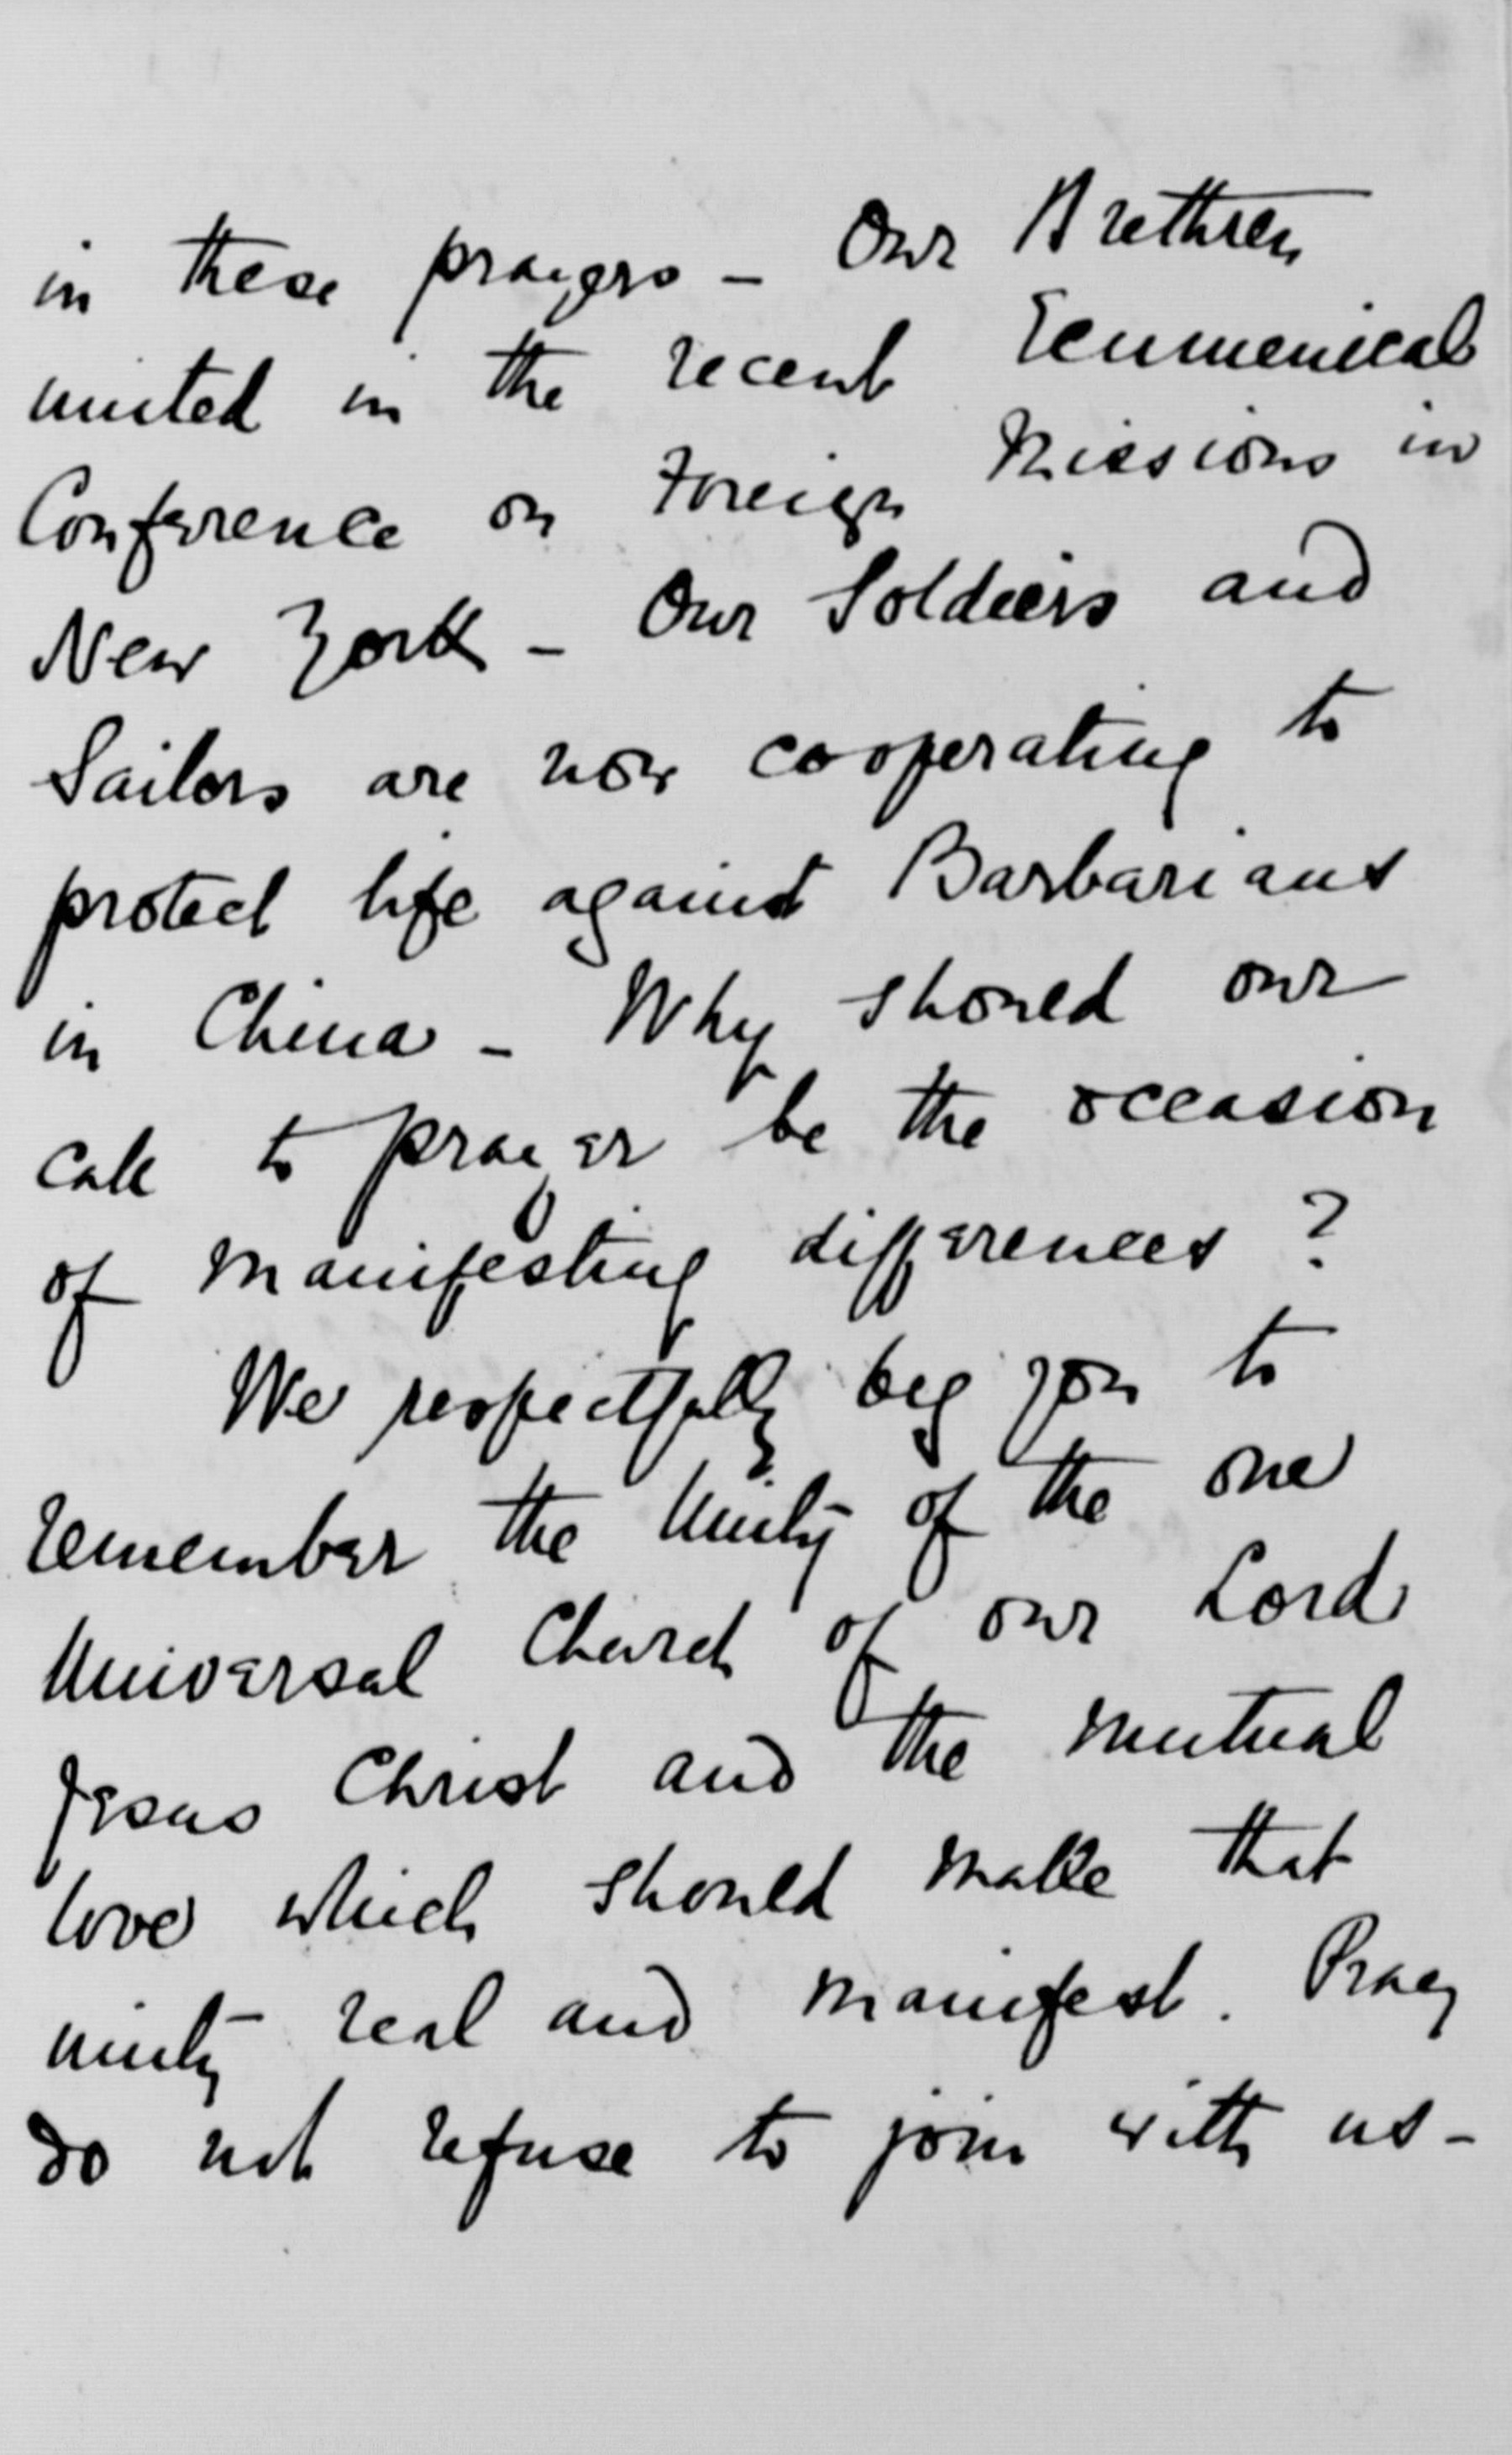 in these prayers – Our Brethren
united in the recent Ecumenical
Conference on Foreign Missions in
New York – Our Soldiers and
Sailors are now cooperating to
protect life against Barbarians
in China – Why should our
call to prayer be the occasion
of manifesting differences ?
We respectfully beg you to
remember the Unity of the one
Universal Church of our Lord
Jesus Christ and the mutual
love which should make that
unity real and manifest. Pray
do not refuse to join with us –